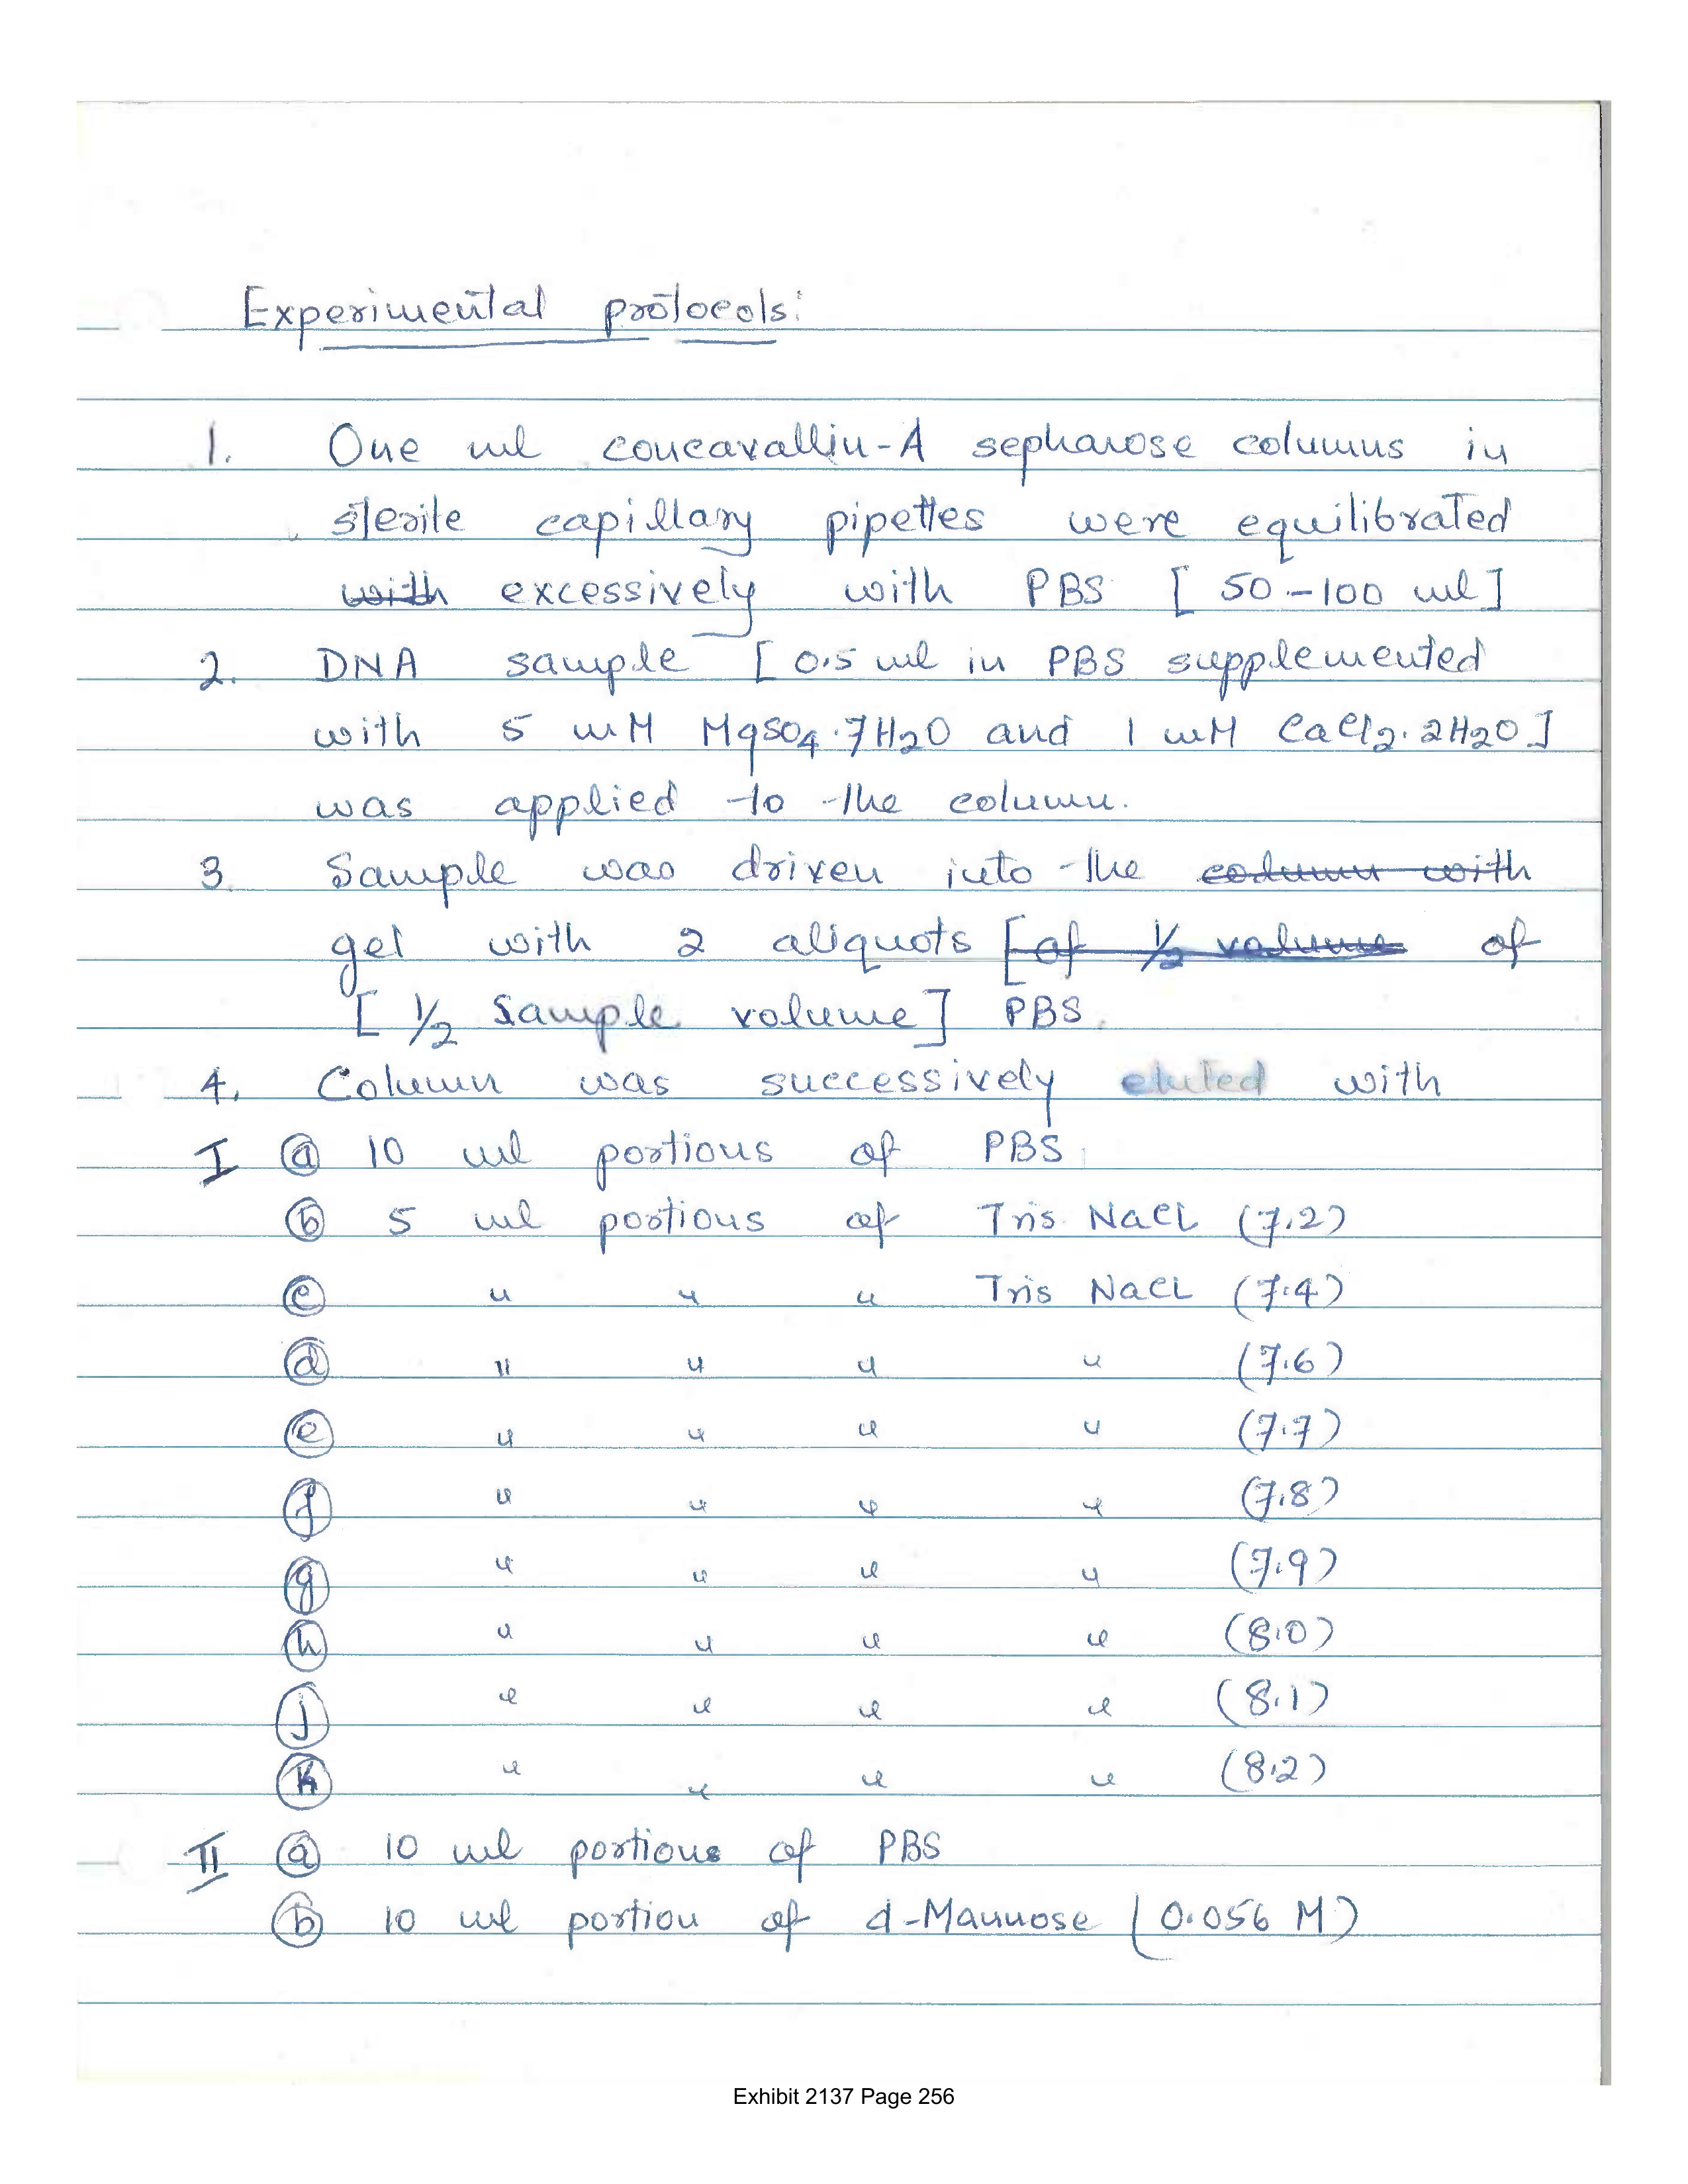 Experimental protocols:
1. One ml concavallin-A sepharose columns in
sterile capillary pipettes were equilibrated
with excessively with PBS [ 50-100 ml ]
2. DNA sample [ 0.5 ml in PBS supplemented
with 5 mM MgSO4.7H2O and 1 mM CaCl2.2H2O ]
was applied to the column.
3. Sample was driven into the column with
gel with 2 aliquots [of 1/2 volume of
[ 1/2 Sample volume ] PBS.
4. Column was successively eluted with
I (a) 10 ml portions of PBS
(b) 5 ml portions of Tris NaCl (7.2)
(c) " " " Tris NaCl (7.4)
(d) " " " " (7.6)
(e) " " " " (7.7)
(f) " " " " (7.8)
(g) " " " " (7.9)
(h) " " " " (8.0)
(j) " " " " (8.1)
(k) " " " " (8.2)
II (a) 10 ml portions of PBS
(b) 10 ml portion of d-Mannose (0.056 M)
Exhibit 2137 Page 256